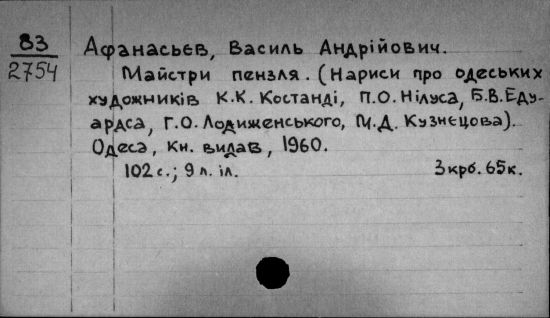 В3
2754
Афанасьєв, Василь Андрійович.
Майстри пензля. (Нариси про одеських
художників К.К. Костанді, П.О. Нілуса, Б.В. Еду-
ардса, Г.О. Лодиженського, М.Д. Кузнєцова).
Одеса, Кн. видав, 1960.
102 с.; 9 л. іл. 3 крб. 65 к.